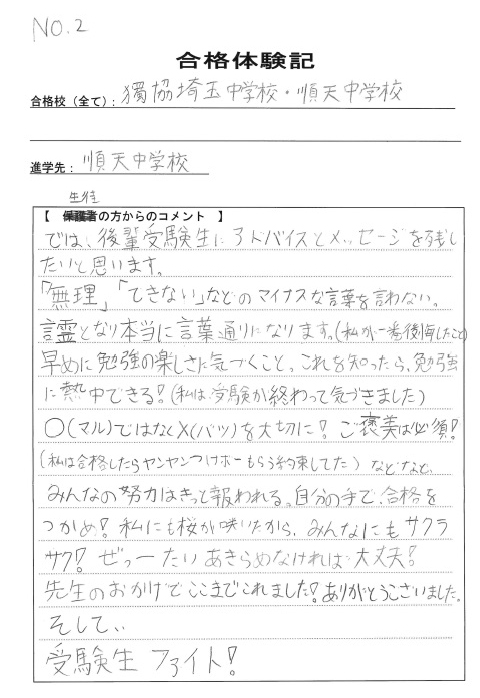 NO.2
合格体験記
合格校（全て）: 獨協埼玉中学校・順天中学校
進学先: 順天中学校
生徒
【 保護者の方からのコメント 】
では、後輩受験生にアドバイスとメッセージを残し
たいと思います。
「無理」「できない」などのマイナスな言葉を言わない。
言霊となり本当に言葉通りになります。(私が一番後悔したこと)
早めに勉強の楽しさに気づくこと。これを知ったら、勉強
に熱中できる!(私は受験が終わって気づきました)
○(マル)ではなく×(バツ)を大切に! ご褒美は必須!
(私は合格したらヤンヤンつけボーもらう約束してた) などなど、
みんなの努力はきっと報われる。自分の手で、合格を
つかめ! 私にも桜が咲いたから、みんなにもサクラ
サク! ぜっーたいあきらめなければ大丈夫!
先生のおかげでここまでこれました! ありがとうございました。
そして、、
受験生 ファイト!